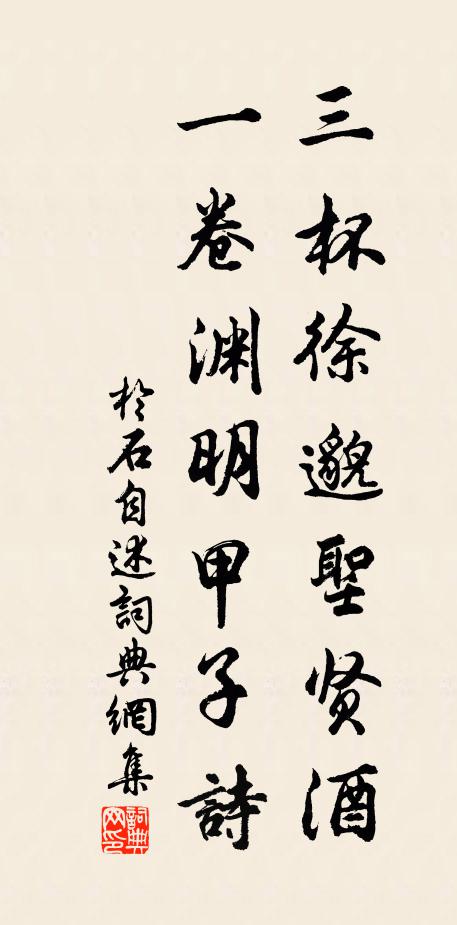 三杯徐邈聖贤酒
一卷渊明甲子詩
於石自述詞典網集
詞典网印